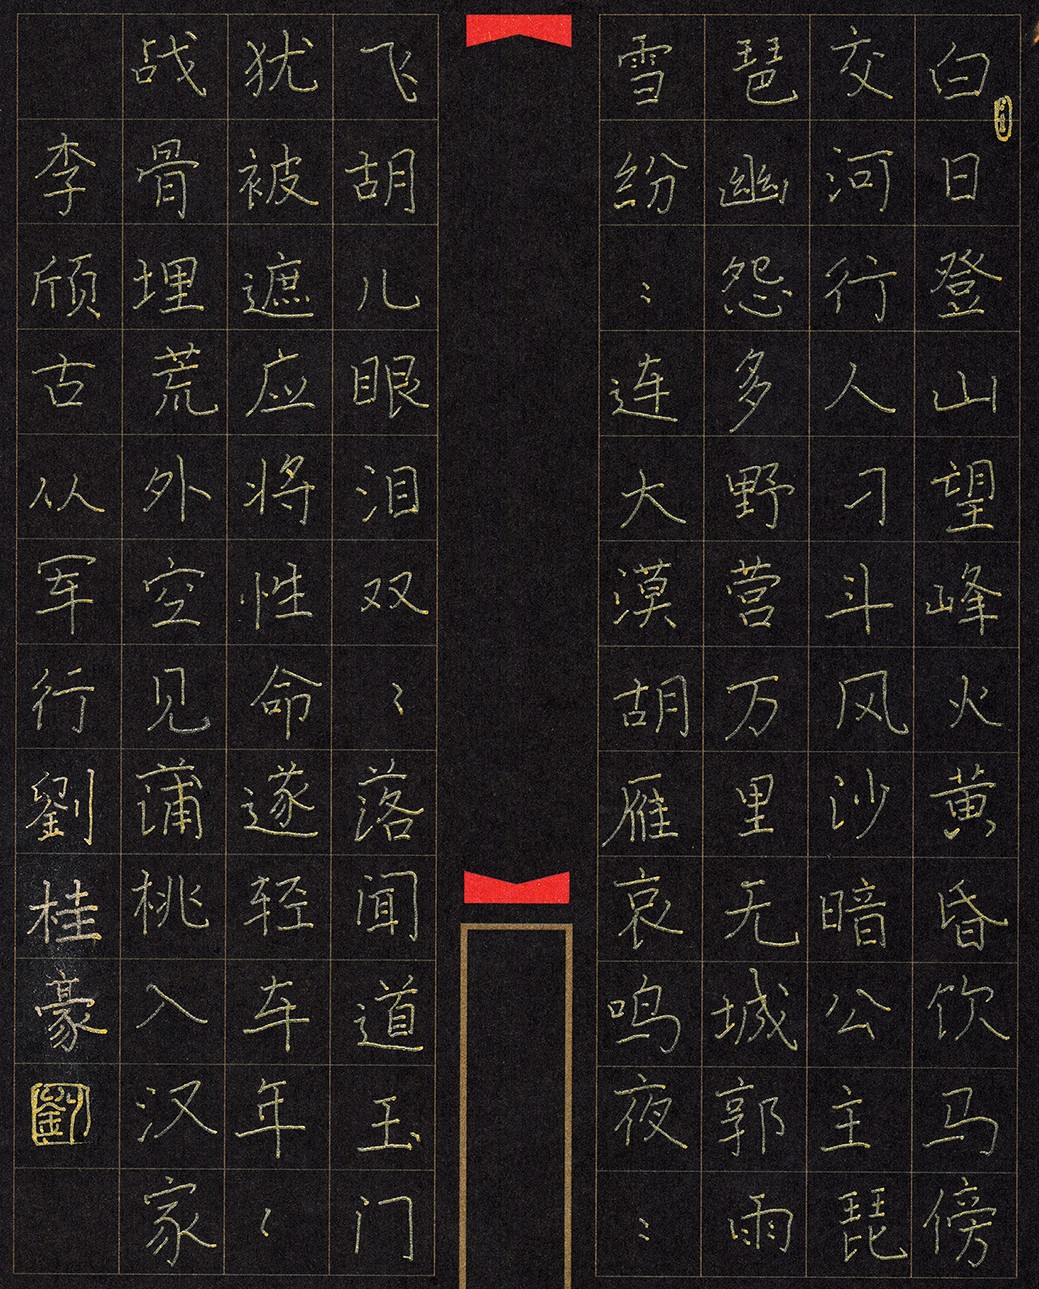 白日登山望峰火黄昏饮马傍
交河行人刁斗风沙暗公主琵
琶幽怨多野营万里无城郭雨
雪纷〻连大漠胡雁哀鸣夜〻
飞胡儿眼泪双〻落闻道玉门
犹被遮应将性命遂轻车年〻
战骨埋荒外空见蒲桃入汉家
李颀古从军行劉桂豪
劉